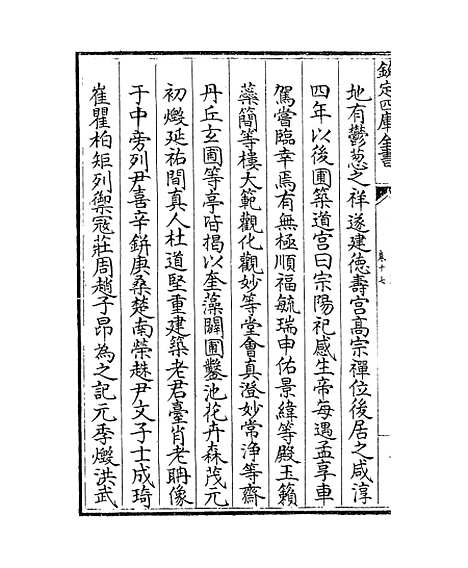 欽定四庫全書
卷十七
地有鬱葱之祥遂建德壽宫髙宗禪位後居之咸淳
四年以後圃築道宫曰宗陽祀感生帝每遇孟享車
駕嘗臨幸焉有無極順福毓瑞申佑景緯等殿玉籟
蘂簡等樓大範觀化觀妙等堂會真澄妙常浄等齋
丹丘玄圃等亭皆揭以奎藻闢圃鑿池花卉森茂元
初燬延祐間真人杜道堅重建築老君臺肖老聃像
于中旁列尹喜辛鈃庚桑楚南榮趎尹文子士成琦
崔瞿柏矩列禦寇莊周趙子昂為之記元季燬洪武